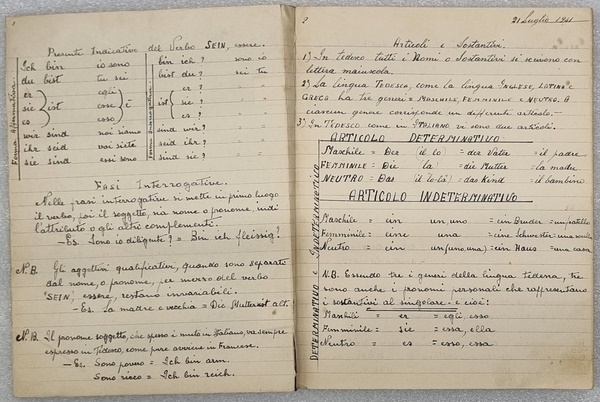 Presente Indicativo del Verbo SEIN, essere.
Forma Affermativa
Ich bin io sono
du bist tu sei
er egli
sie ist essa è
es esso
wir sind noi siamo
ihr seid voi siete
sie sind essi sono
Forma Interrogativa
bin ich? sono io
bist du? sei tu
er? " "
ist sie? " "
es? " "
sind wir? " "
seid ihr? " "
sind sie? " "
Frasi Interrogative.
Nelle frasi interrogative si mette in primo luogo
il verbo, poi il soggetto, sia nome o pronome, indi
l'attributo o gli altri complementi.
- Es. Sono io diligente? = Bin ich fleissig?
N.B. Gli aggettivi qualificativi, quando sono separati
dal nome, o pronome, per mezzo del verbo
"SEIN", essere, restano invariabili.
- Es. La madre è vecchia = Die Mutter ist alt.
N.B. Il pronome soggetto, che spesso è muto in Italiano, va sempre
espresso in Tedesco, come pure avviene in Francese.
- Es. Sono povero = Ich bin arm.
Sono ricco = Ich bin reich.
2 21 Luglio 1941
Articoli e Sostantivi.
1) In tedesco tutti i Nomi o Sostantivi si scrivono con
lettera maiuscola.
2) La lingua TEDESCA, come la lingua INGLESE, LATINA e
GRECA ha tre generi = MASCHILE, FEMMINILE e NEUTRO. A
ciascun genere corrisponde un differente articolo.-
3) In TEDESCO come in ITALIANO vi sono due articoli.
DETERMINATIVO e INDETERMINATIVO
ARTICOLO DETERMINATIVO
MASCHILE = Der (il lo) = der Vater = il padre
FEMMINILE = Die (la) = die Mutter = la madre
NEUTRO = Das (il lo la) = das Kind = il bambino
ARTICOLO INDETERMINATIVO
Maschile = ein un, uno = ein Bruder = un fratello
Femminile = eine una = eine Schwester = una sorella
Neutro = ein un (uno, una) = ein Haus = una casa
N.B. Essendo tre i generi della lingua tedesca, tre
sono anche i pronomi personali che rappresentano
i sostantivi al singolare - e cioè:
Maschili = er = egli, esso
Femminile = sie = essa, ella
Neutro = es = esso, essa